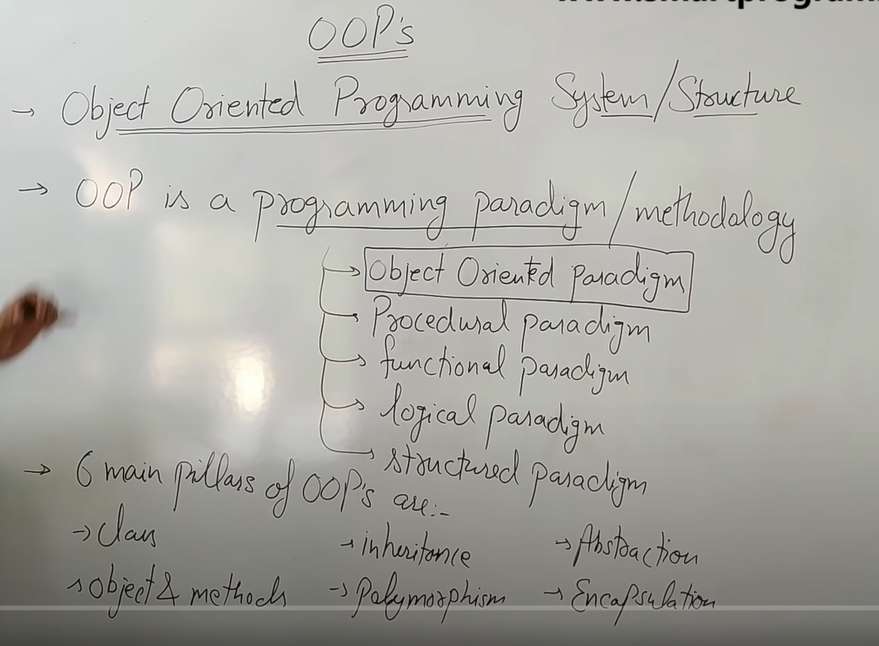 OOP's
→ Object Oriented Programming System/Structure
→ OOP is a programming paradigm/methodology
→ Object Oriented Paradigm
→ Procedural paradigm
→ functional paradigm
→ logical paradigm
→ structured paradigm
→ 6 main pillars of OOP's are:-
→ Class → inheritance → Abstraction
→ Object & methods → Polymorphism → Encapsulation